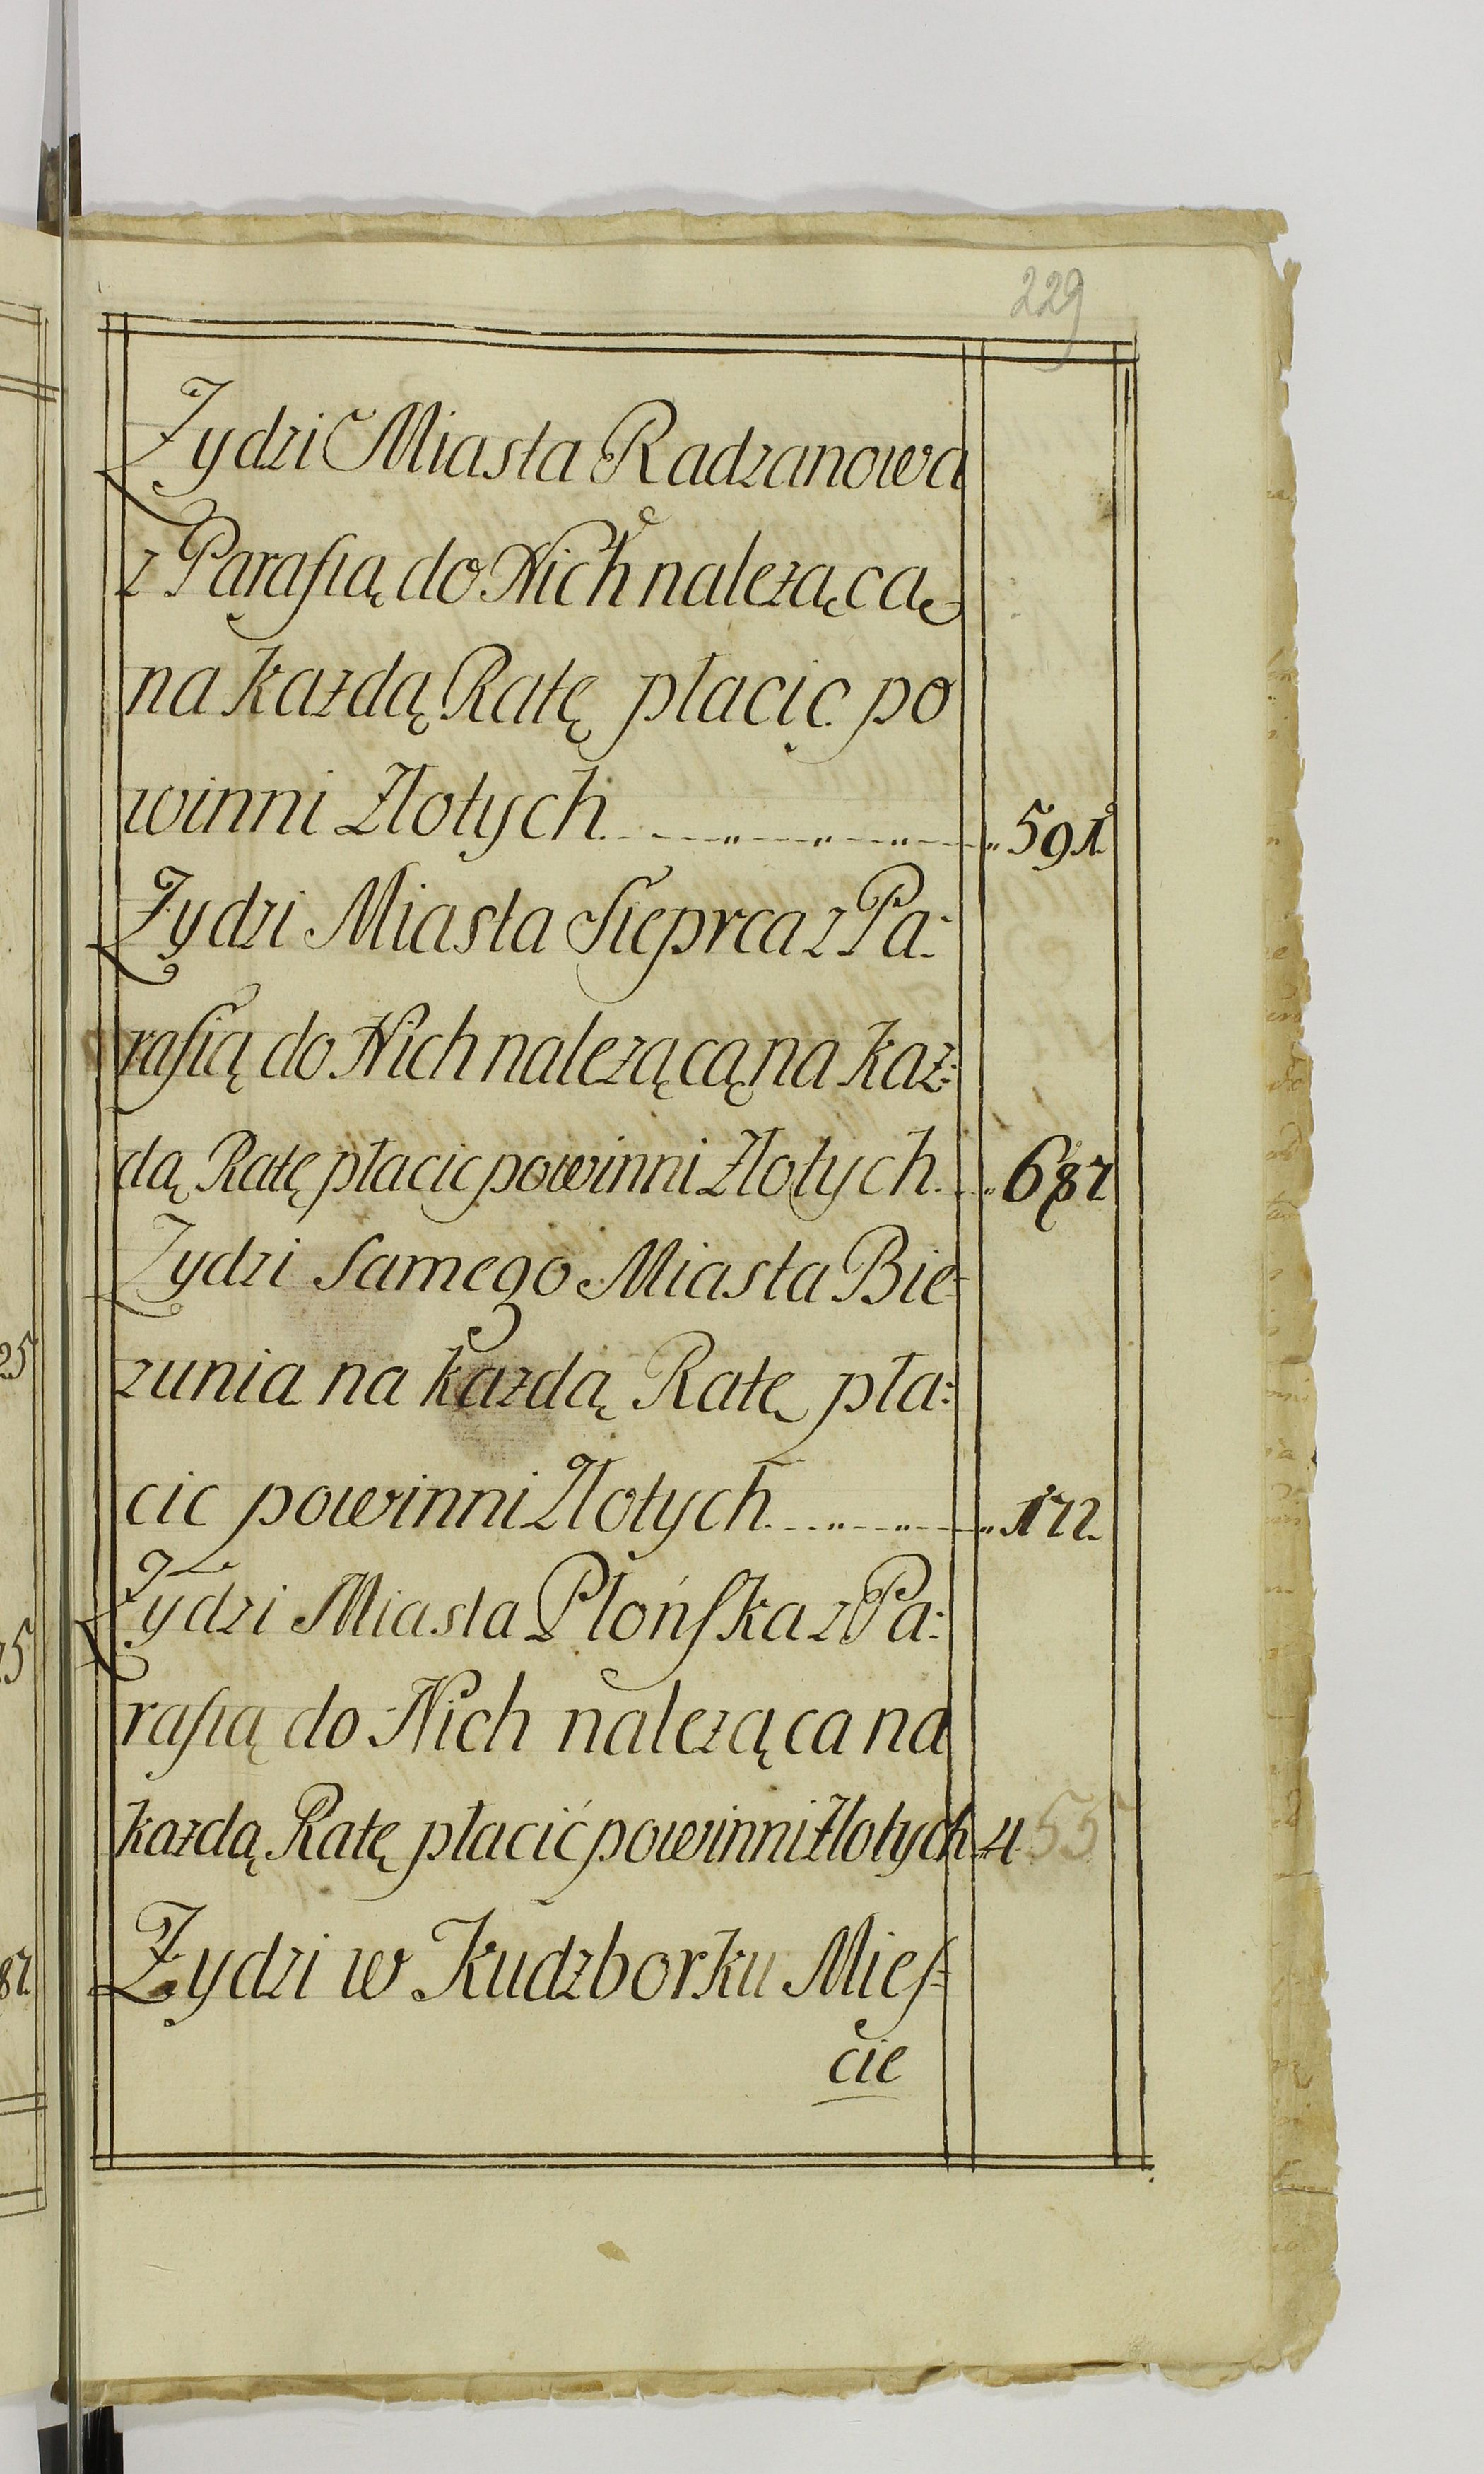 229
Żydzi Miasta Radzanowa
z Parafią do Nich należącą
na każdą Ratę płacic po
winni Złotych 591
Żydzi Miasta Sieprca z Pa:
rafią do Nich należącą na każ:
dą Ratę płacic powinni Złotych 687
Żydzi Samego Miasta Bie-
zunia na każdą Ratę pła:
cic powinni Złotych 172
Żydzi Miasta Płońska z Pa:
rafią do Nich należąca na
każdą Ratę płacić powinni Złotych 455
Żydzi w Kudzborku Mieś-
cie
25
87